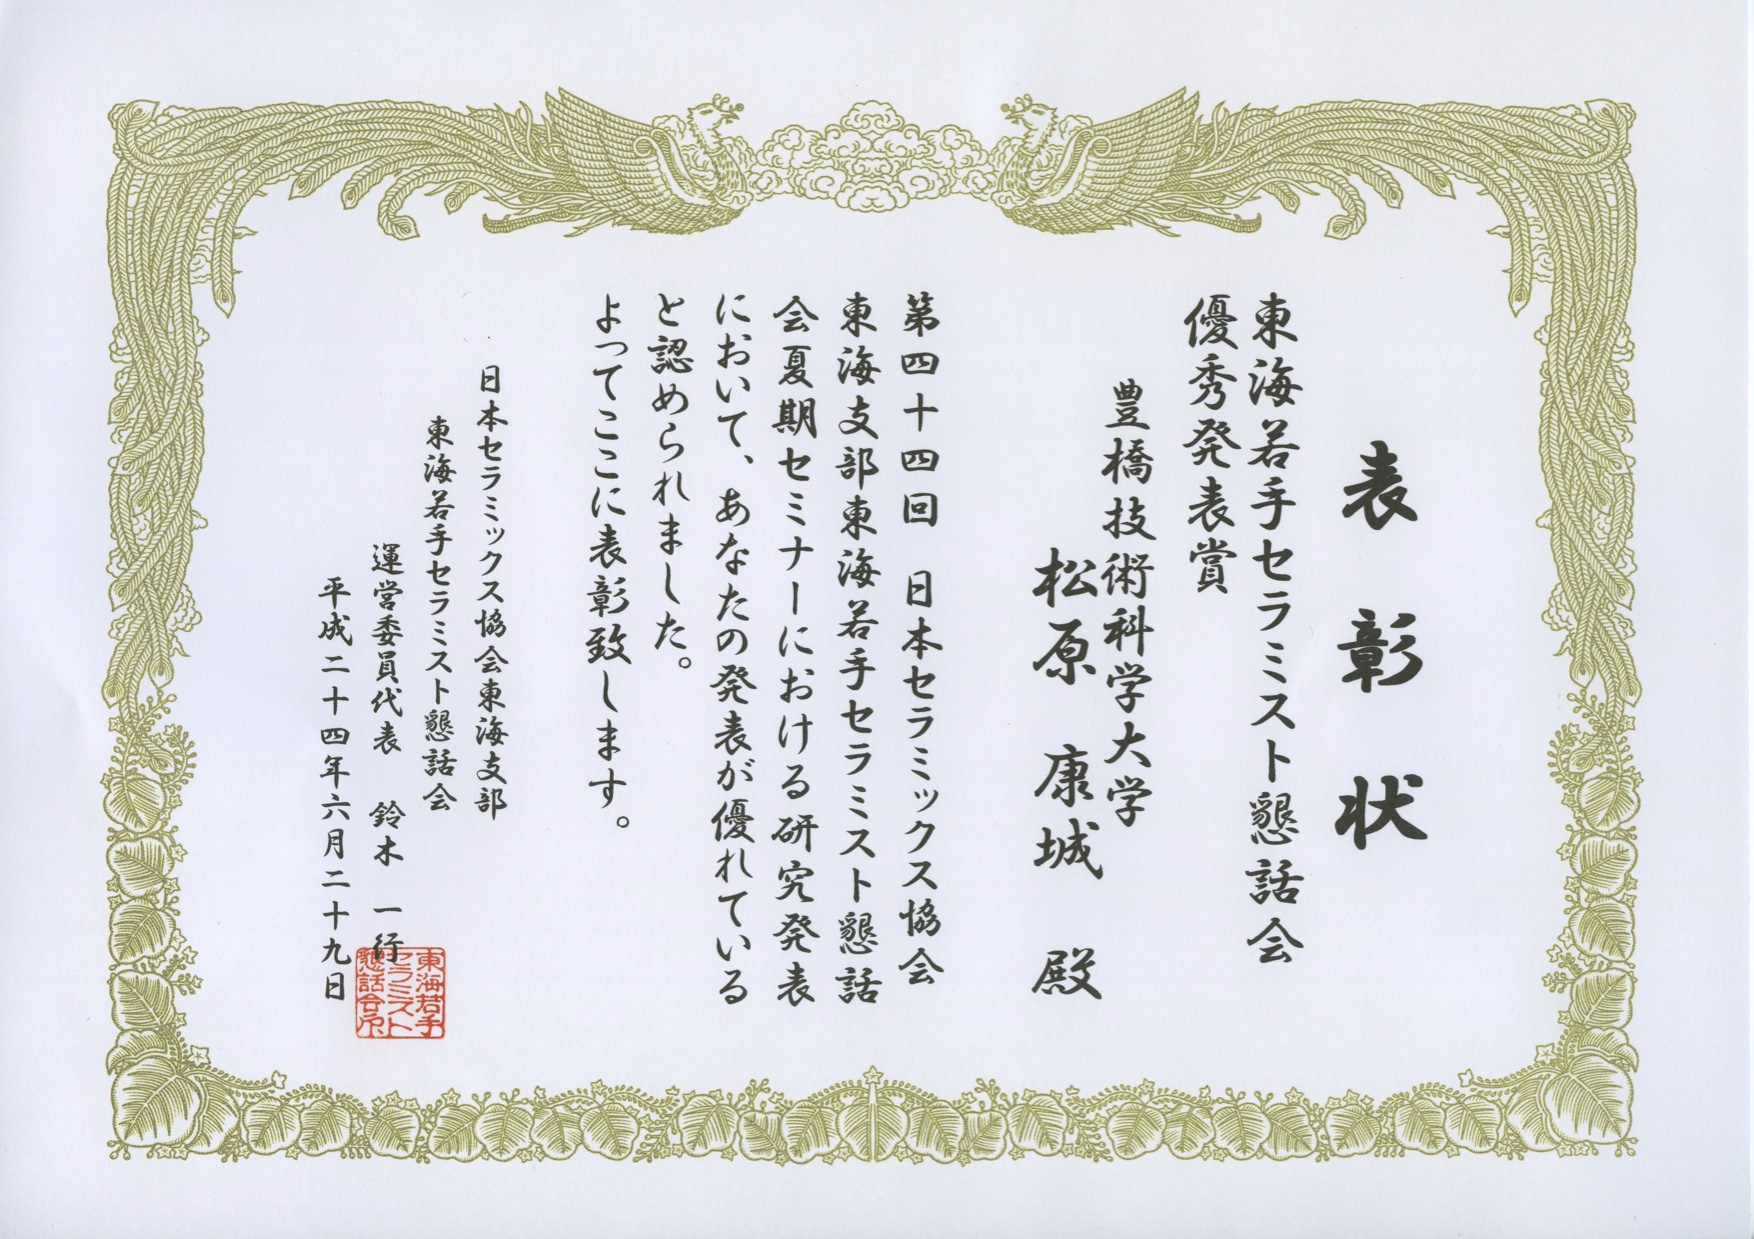 表彰状
東海若手セラミスト懇話会
優秀発表賞
豊橋技術科学大学
松原 康城 殿
第四十四回 日本セラミックス協会
東海支部東海若手セラミスト懇話
会夏期セミナーにおける研究発表
において、あなたの発表が優れている
と認められました。
よってここに表彰致します。
日本セラミックス協会東海支部
東海若手セラミスト懇話会
運営委員代表 鈴木 一行
平成二十四年六月二十九日
東海若手
セラミスト
懇話会印